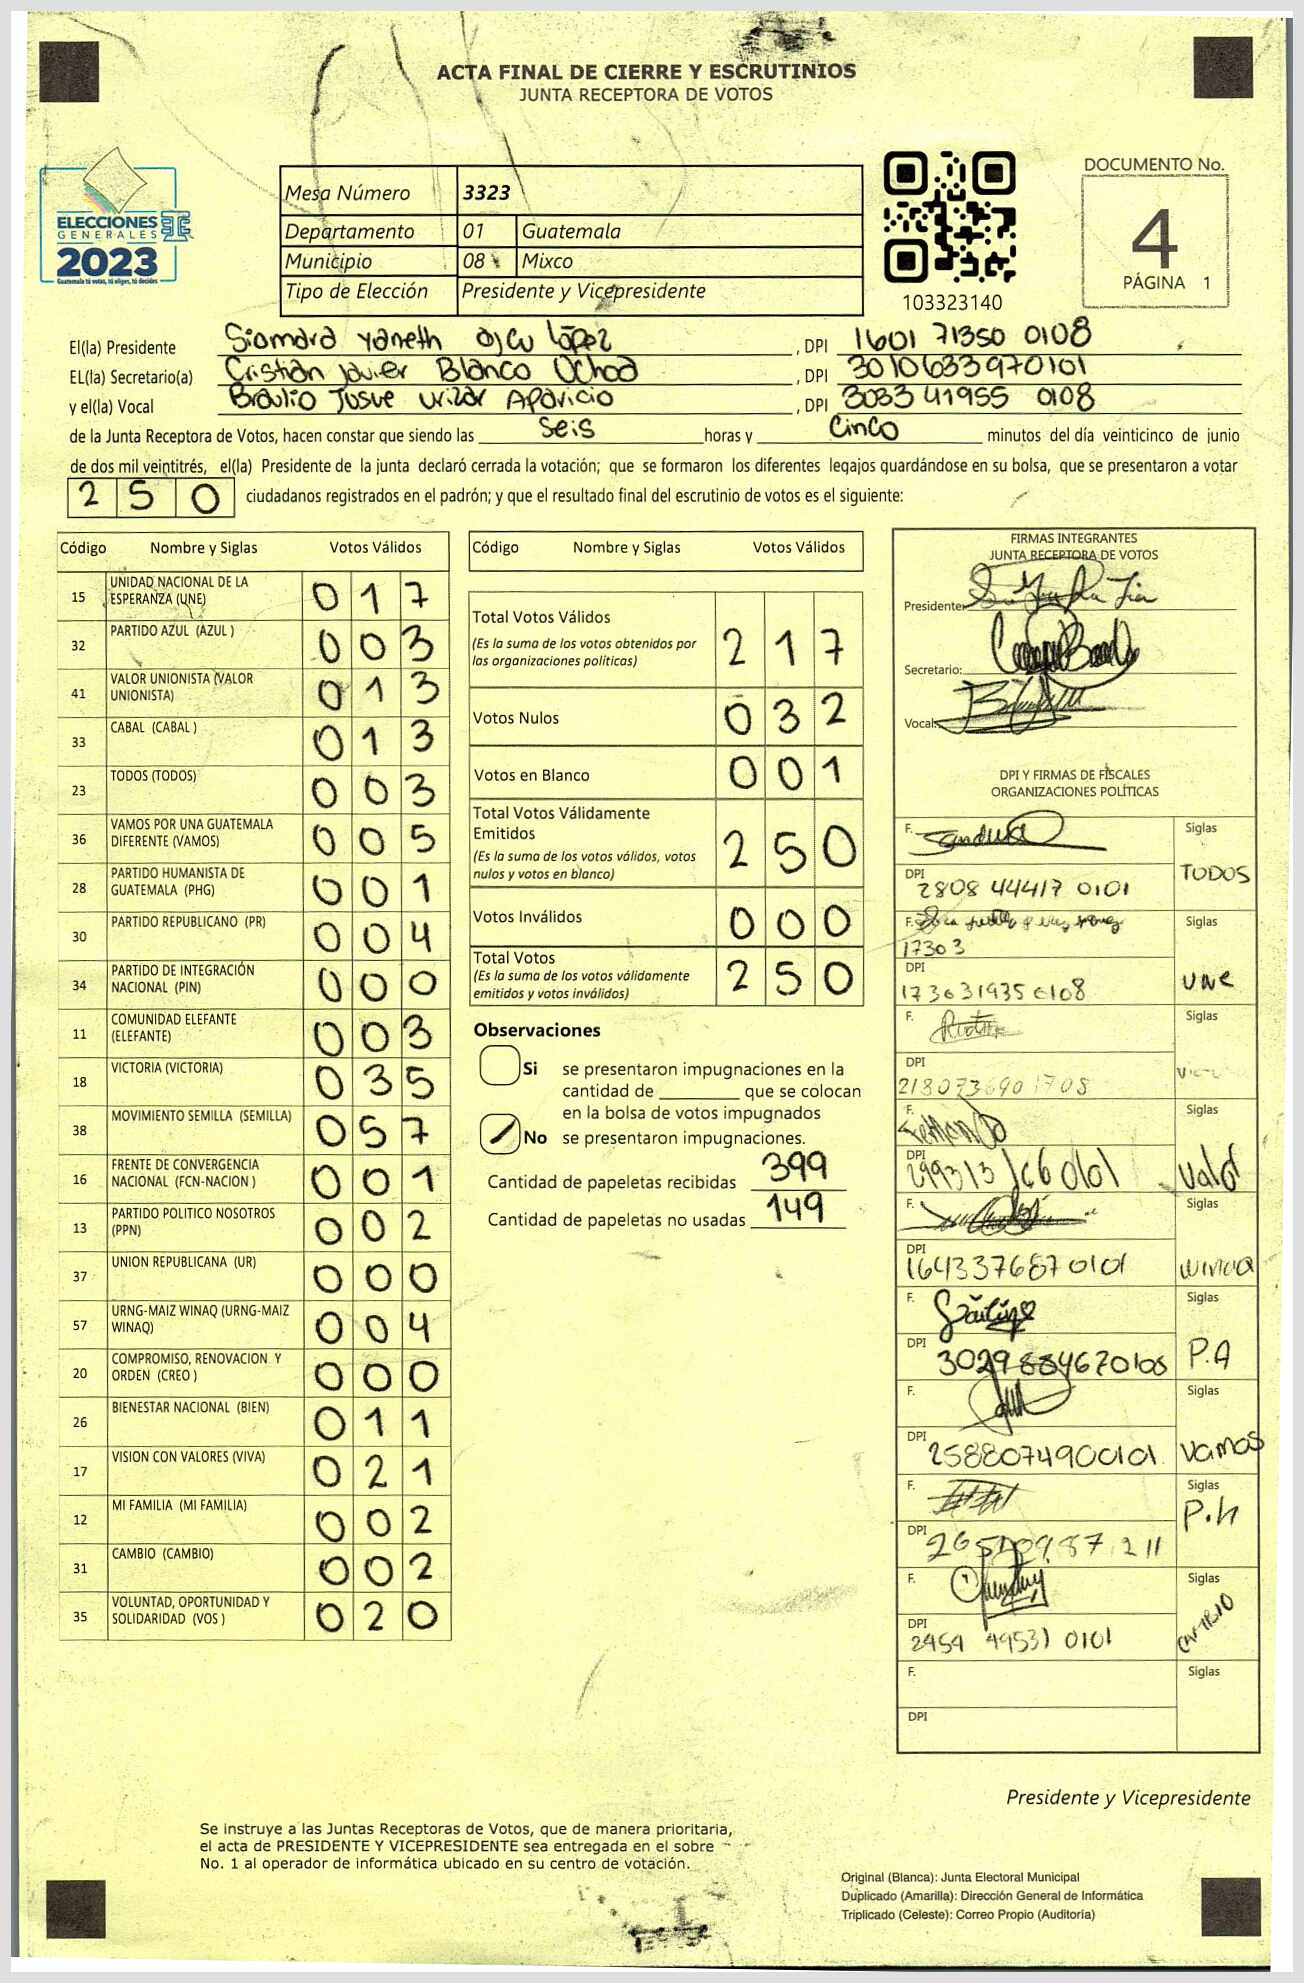 ACTA FINAL DE CIERRE Y ESCRUTINIOS
JUNTA RECEPTORA DE VOTOS
ELECCIONES
GENERALES
2023
Guatemala tú votas, tú eliges, tú decides
Mesa Número 3323
Departamento 01 Guatemala
Municipio 08 Mixco
Tipo de Elección Presidente y Vicepresidente
103323140
DOCUMENTO No.
4
PÁGINA 1
El(la) Presidente Siomara Yaneth Ojcu López , DPI 1601 71350 0108
EL(la) Secretario(a) Cristian Javier Blanco Ochoa , DPI 3010633970101
y el(la) Vocal Braulio Josue Urizar Aparicio , DPI 3033 41955 0108
de la Junta Receptora de Votos, hacen constar que siendo las Seis horas y Cinco minutos del día veinticinco de junio
de dos mil veintitrés, el(la) Presidente de la junta declaró cerrada la votación; que se formaron los diferentes legajos guardándose en su bolsa, que se presentaron a votar
250 ciudadanos registrados en el padrón; y que el resultado final del escrutinio de votos es el siguiente:
Código Nombre y Siglas Votos Válidos
15 UNIDAD NACIONAL DE LA ESPERANZA (UNE) 017
32 PARTIDO AZUL (AZUL ) 003
41 VALOR UNIONISTA (VALOR UNIONISTA) 013
33 CABAL (CABAL ) 013
23 TODOS (TODOS) 003
36 VAMOS POR UNA GUATEMALA DIFERENTE (VAMOS) 005
28 PARTIDO HUMANISTA DE GUATEMALA (PHG) 001
30 PARTIDO REPUBLICANO (PR) 004
34 PARTIDO DE INTEGRACIÓN NACIONAL (PIN) 000
11 COMUNIDAD ELEFANTE (ELEFANTE) 003
18 VICTORIA (VICTORIA) 035
38 MOVIMIENTO SEMILLA (SEMILLA) 057
16 FRENTE DE CONVERGENCIA NACIONAL (FCN-NACION ) 001
13 PARTIDO POLITICO NOSOTROS (PPN) 002
37 UNION REPUBLICANA (UR) 000
57 URNG-MAIZ WINAQ (URNG-MAIZ WINAQ) 004
20 COMPROMISO, RENOVACION Y ORDEN (CREO ) 000
26 BIENESTAR NACIONAL (BIEN) 011
17 VISION CON VALORES (VIVA) 021
12 MI FAMILIA (MI FAMILIA) 002
31 CAMBIO (CAMBIO) 002
35 VOLUNTAD, OPORTUNIDAD Y SOLIDARIDAD (VOS ) 020
Código Nombre y Siglas Votos Válidos
Total Votos Válidos 217
(Es la suma de los votos obtenidos por las organizaciones políticas)
Votos Nulos 032
Votos en Blanco 001
Total Votos Válidamente Emitidos 250
(Es la suma de los votos válidos, votos nulos y votos en blanco)
Votos Inválidos 000
Total Votos 250
(Es la suma de los votos válidamente emitidos y votos inválidos)
Observaciones
Si se presentaron impugnaciones en la
cantidad de ________ que se colocan
en la bolsa de votos impugnados
No se presentaron impugnaciones.
Cantidad de papeletas recibidas 399
Cantidad de papeletas no usadas 149
FIRMAS INTEGRANTES
JUNTA RECEPTORA DE VOTOS
Presidente:
Secretario:
Vocal:
DPI Y FIRMAS DE FISCALES
ORGANIZACIONES POLÍTICAS
F. Siglas
DPI 2808 44417 0101 TODOS
F. Siglas
17303
DPI 173631935 0108 UNE
F. Siglas
DPI
F. Siglas
DPI Valor
F. Siglas
DPI 1643376870101 WINAQ
F. Siglas
DPI 3029884670108 P.A
F. Siglas
DPI 2588074900101 Vamos
F. Siglas
DPI P.H
F. Siglas
DPI 2454 49531 0101 CAMBIO
F. Siglas
DPI
Presidente y Vicepresidente
Se instruye a las Juntas Receptoras de Votos, que de manera prioritaria,
el acta de PRESIDENTE Y VICEPRESIDENTE sea entregada en el sobre
No. 1 al operador de informática ubicado en su centro de votación.
Original (Blanca): Junta Electoral Municipal
Duplicado (Amarilla): Dirección General de Informática
Triplicado (Celeste): Correo Propio (Auditoría)